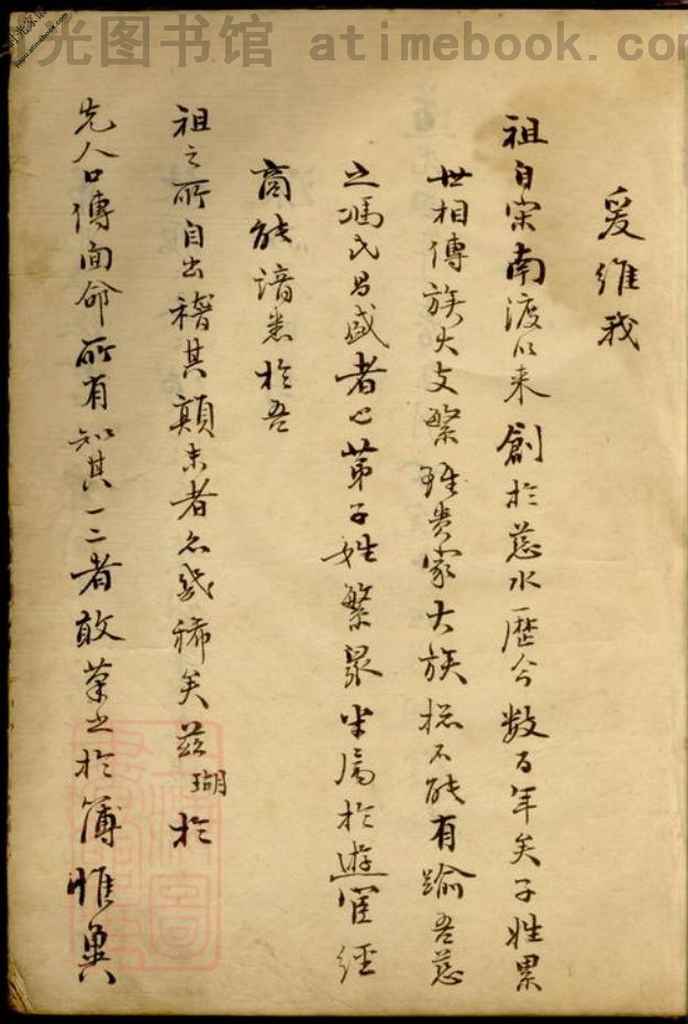 时光图书馆 atimebook.com
爰維我
祖自宋南渡以来創於慈水歷今数百年矣子姓累
世相傳族大支繁雖貴家大族概不能有踰吾慈
之馮氏昌盛者也苐子姓繁衆半属於遊宦經
商能諳悉於吾
祖之所自出稽其顛末者亦幾稀矣兹瑚於
先人口傳面命所有知其一二者敢筆之於簿惟兾